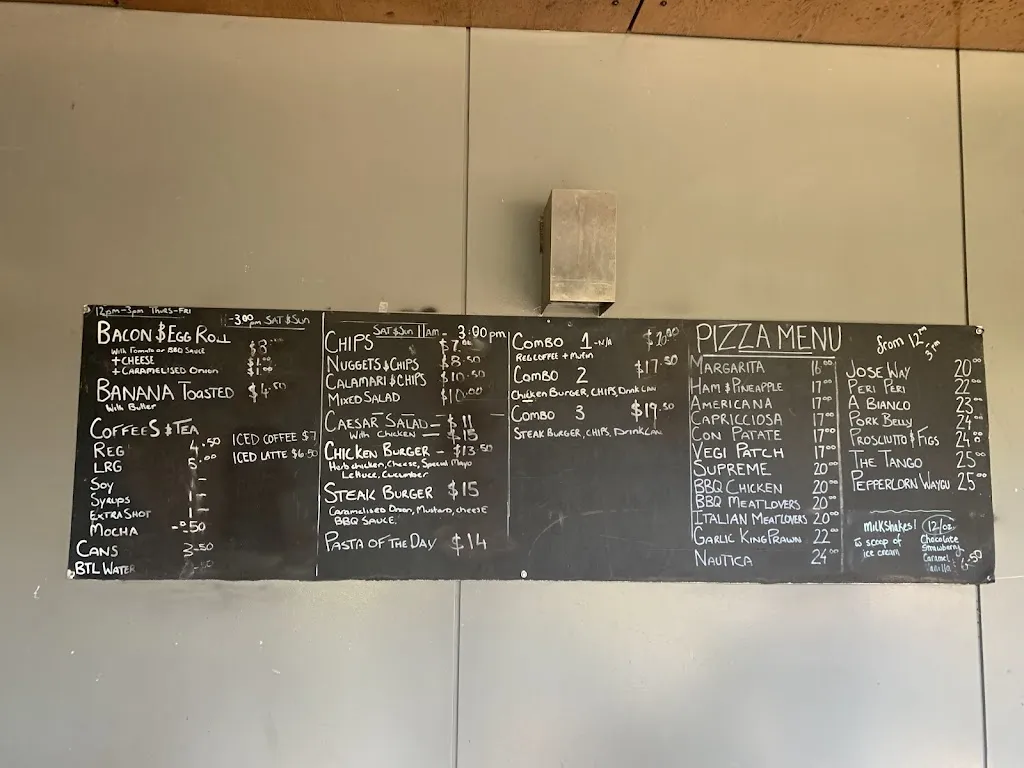 12pm-3pm THURS-FRI
-3:00pm SAT & SUN
BACON & EGG ROLL $8
With Tomato or BBQ SAUCE
+ CHEESE $1.00
+ CARAMELISED Onion $1.00
BANANA TOASTED $4.50
With Butter
COFFEES & TEA
REG 4.50
LRG 5.00
SOY 1-
SYRUPS 1-
EXTRA SHOT 1-
MOCHA -0.50
CANS 3.50
BTL WATER
ICED COFFEE $7
ICED LATTE $6.50
SAT & SUN 11AM - 3:00pm
CHIPS $7.00
NUGGETS & CHIPS $8.50
CALAMARI & CHIPS $10.50
MIXED SALAD $10.00
CAESAR SALAD - $11
With CHICKEN - $15
CHICKEN BURGER - $13.50
Herb chicken, cheese, Special Mayo
Lettuce, cucumber
STEAK BURGER $15
Caramelised Onion, Mustard, cheese
BBQ SAUCE.
PASTA OF THE DAY $14
COMBO 1 -N/A
REG COFFEE + Mufin
COMBO 2 $17.50
Chicken BURGER, CHIPS, Drink CAN
COMBO 3 $19.50
STEAK BURGER, CHIPS, Drink CAN
PIZZA MENU
from 12pm
3pm
MARGARITA 16.00
HAM & PINEAPPLE 17.00
AMERICANA 17.00
CAPRICCIOSA 17.00
CON PATATE 17.00
VEGI PATCH 17.00
SUPREME 20.00
BBQ CHICKEN 20.00
BBQ MEATLOVERS 20.00
ITALIAN MEATLOVERS 20.00
GARLIC KING PRAWN 22.00
NAUTICA 24.00
JOSE WAY 20.00
PERI PERI 22.00
A BIANCO 23.00
PORK BELLY 24.00
PROSCIUTTO & FIGS 24.00
THE TANGO 25.00
PEPPERCORN WAYGU 25.00
MILKSHAKES!
scoop of
ice cream
12/oz
Chocolate
Strawberry
Caramel
Vanilla
6.50